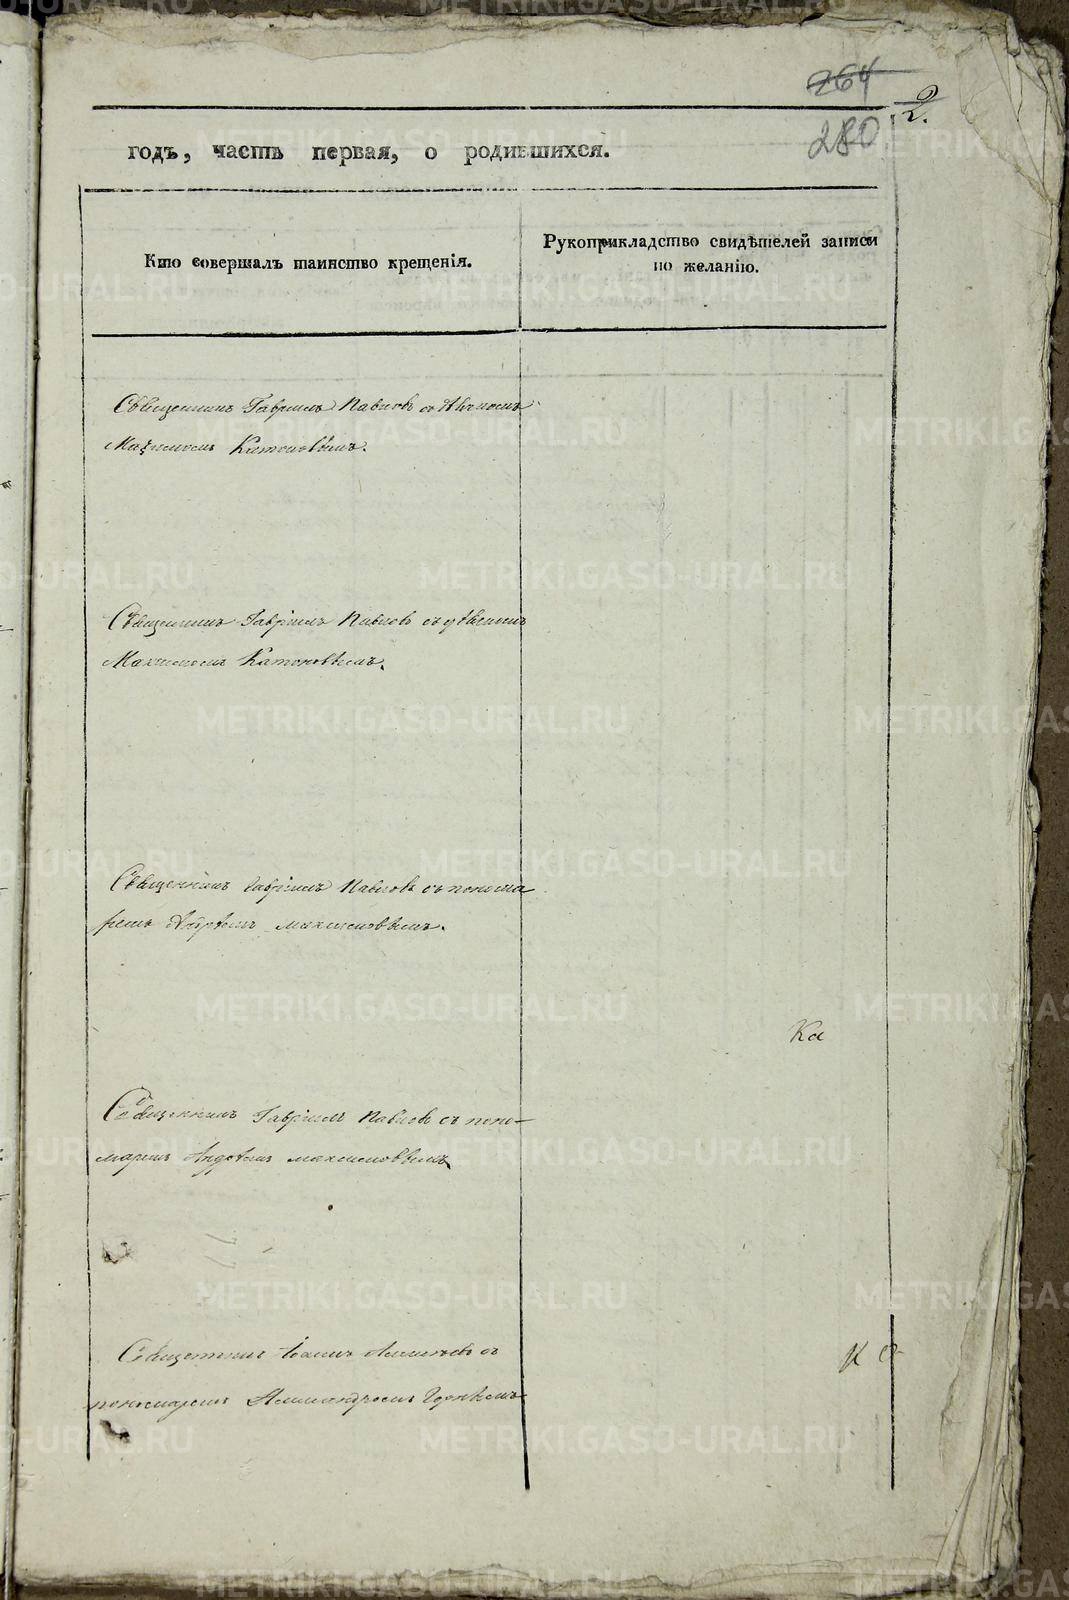 264
2.
280
годъ, часть первая, о родившихся.
Кто совершалъ таинство крещенія.
Рукоприкладство свидѣтелей записи
по желанію.
Священникъ Гавріилъ Павловъ съ
Максимомъ Катоновымъ.
Священникъ Гавріилъ Павловъ съ
Максимомъ Катоновымъ.
Священникъ Гавріилъ Павловъ съ понома
ремъ Андреемъ Максимовымъ.
Ка
Священникъ Гавріилъ Павловъ съ поно-
маремъ Андреемъ Максимовымъ
Священникъ Іоаннъ съ
К о
пономаремъ Александромъ
METRIKI.GASO-URAL.RU